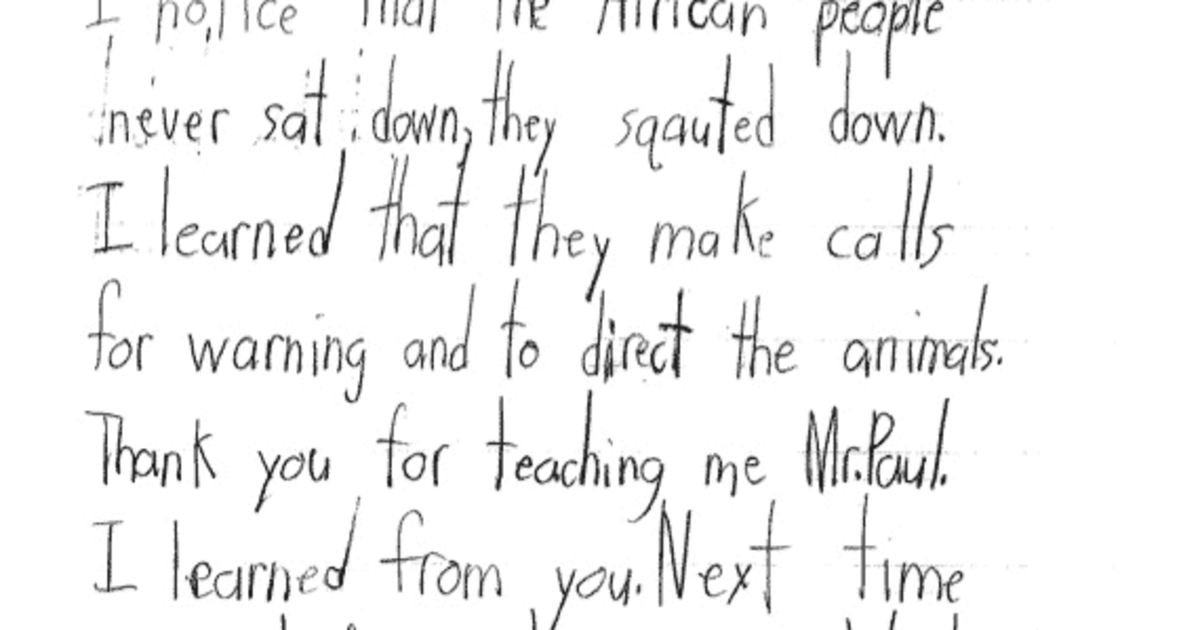 I notice that the African people
never sat down, they sqauted down.
I learned that they make calls
for warning and to direct the animals.
Thank you for teaching me Mr. Paul.
I learned from you. Next time